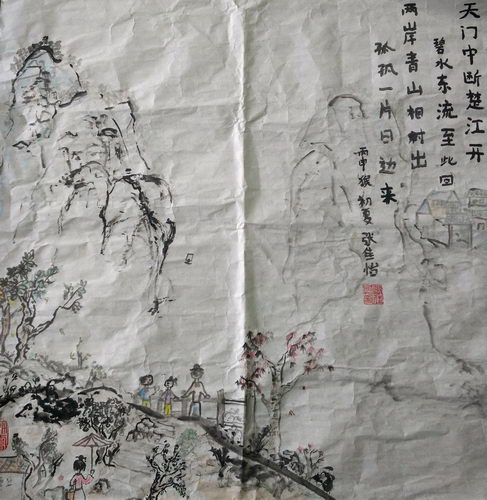 天门中断楚江开
碧水东流至此回
两岸青山相对出
孤帆一片日边来
丙申猴初夏张佳怡